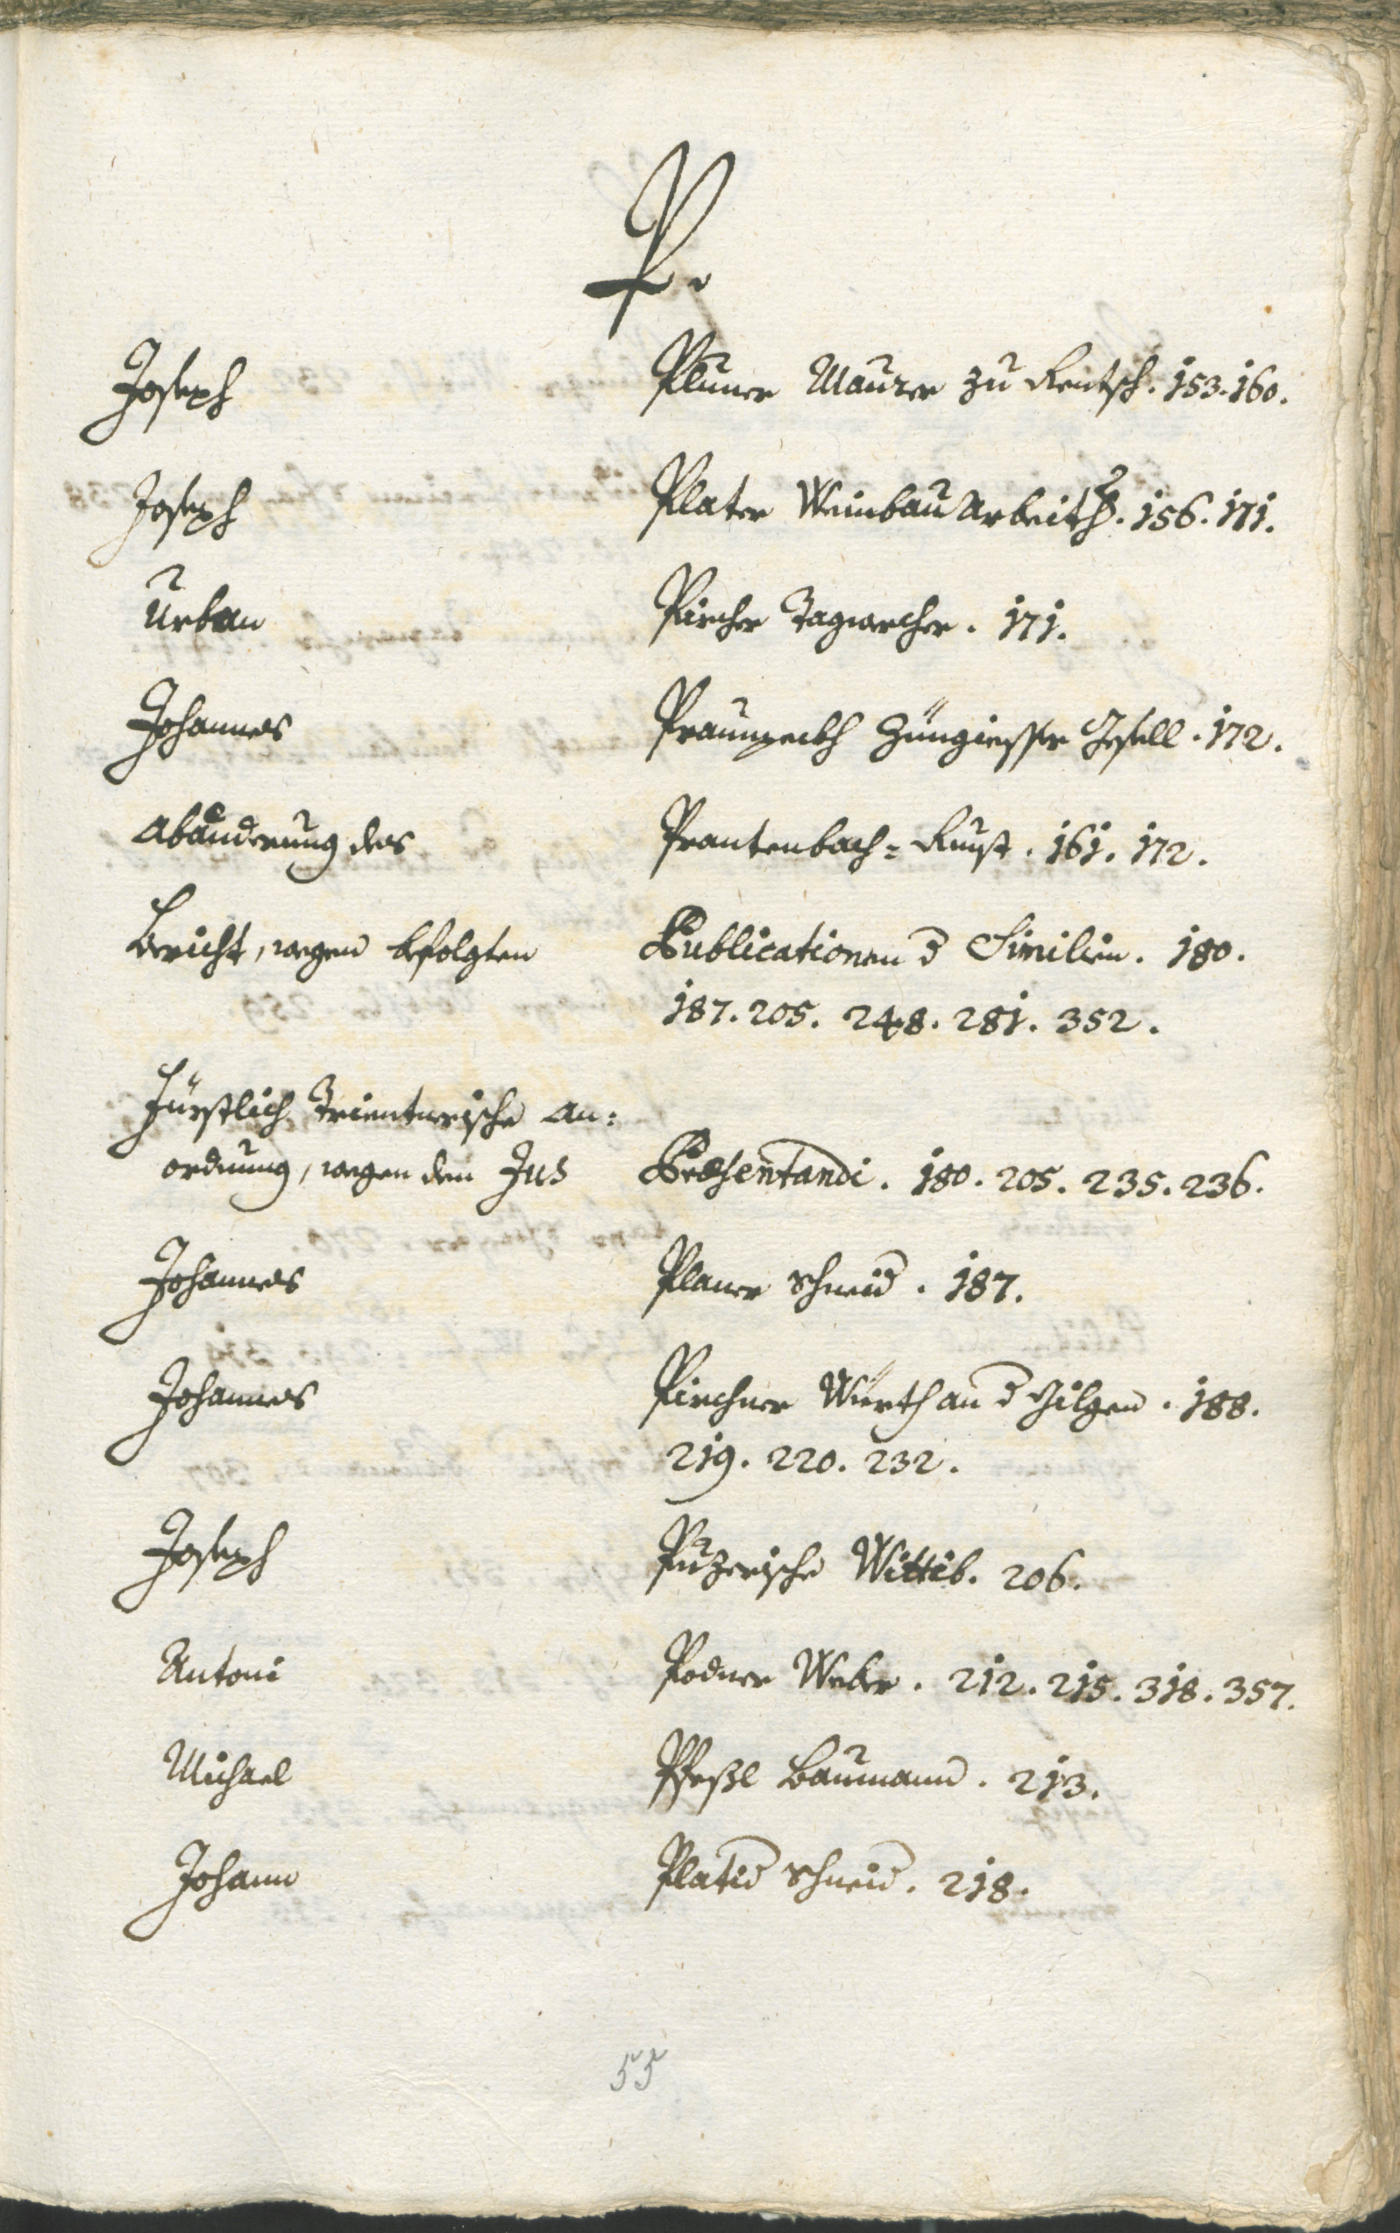 P.
Joseph Pluner Maurer zu Rentsch. 153. 160.
Joseph Plater Weinbau Arbeiths. 156. 171.
Urban Pircher Tagwercher. 171.
Johannes Praunpeckh Züngiesser Gesell. 172.
Abänderung des Prantenbach= Runst. 161. 172.
Bericht, wegen befolgten Publicationen d Similien. 180.
187. 205. 248. 281. 352.
Fürstlich Trienterische An:
ordnung, wegen dem Jus Præsentandi. 180. 205. 235. 236.
Johannes Planer Schneid. 187.
Johannes Pirchner Würth an d Gilgen. 188.
219. 220. 232.
Joseph Puzerische Wittib. 206.
Antoni Podner Weber. 212. 215. 318. 357.
Michael Pfeßl Baumann. 213.
Johann Platid Schneid. 218.
55